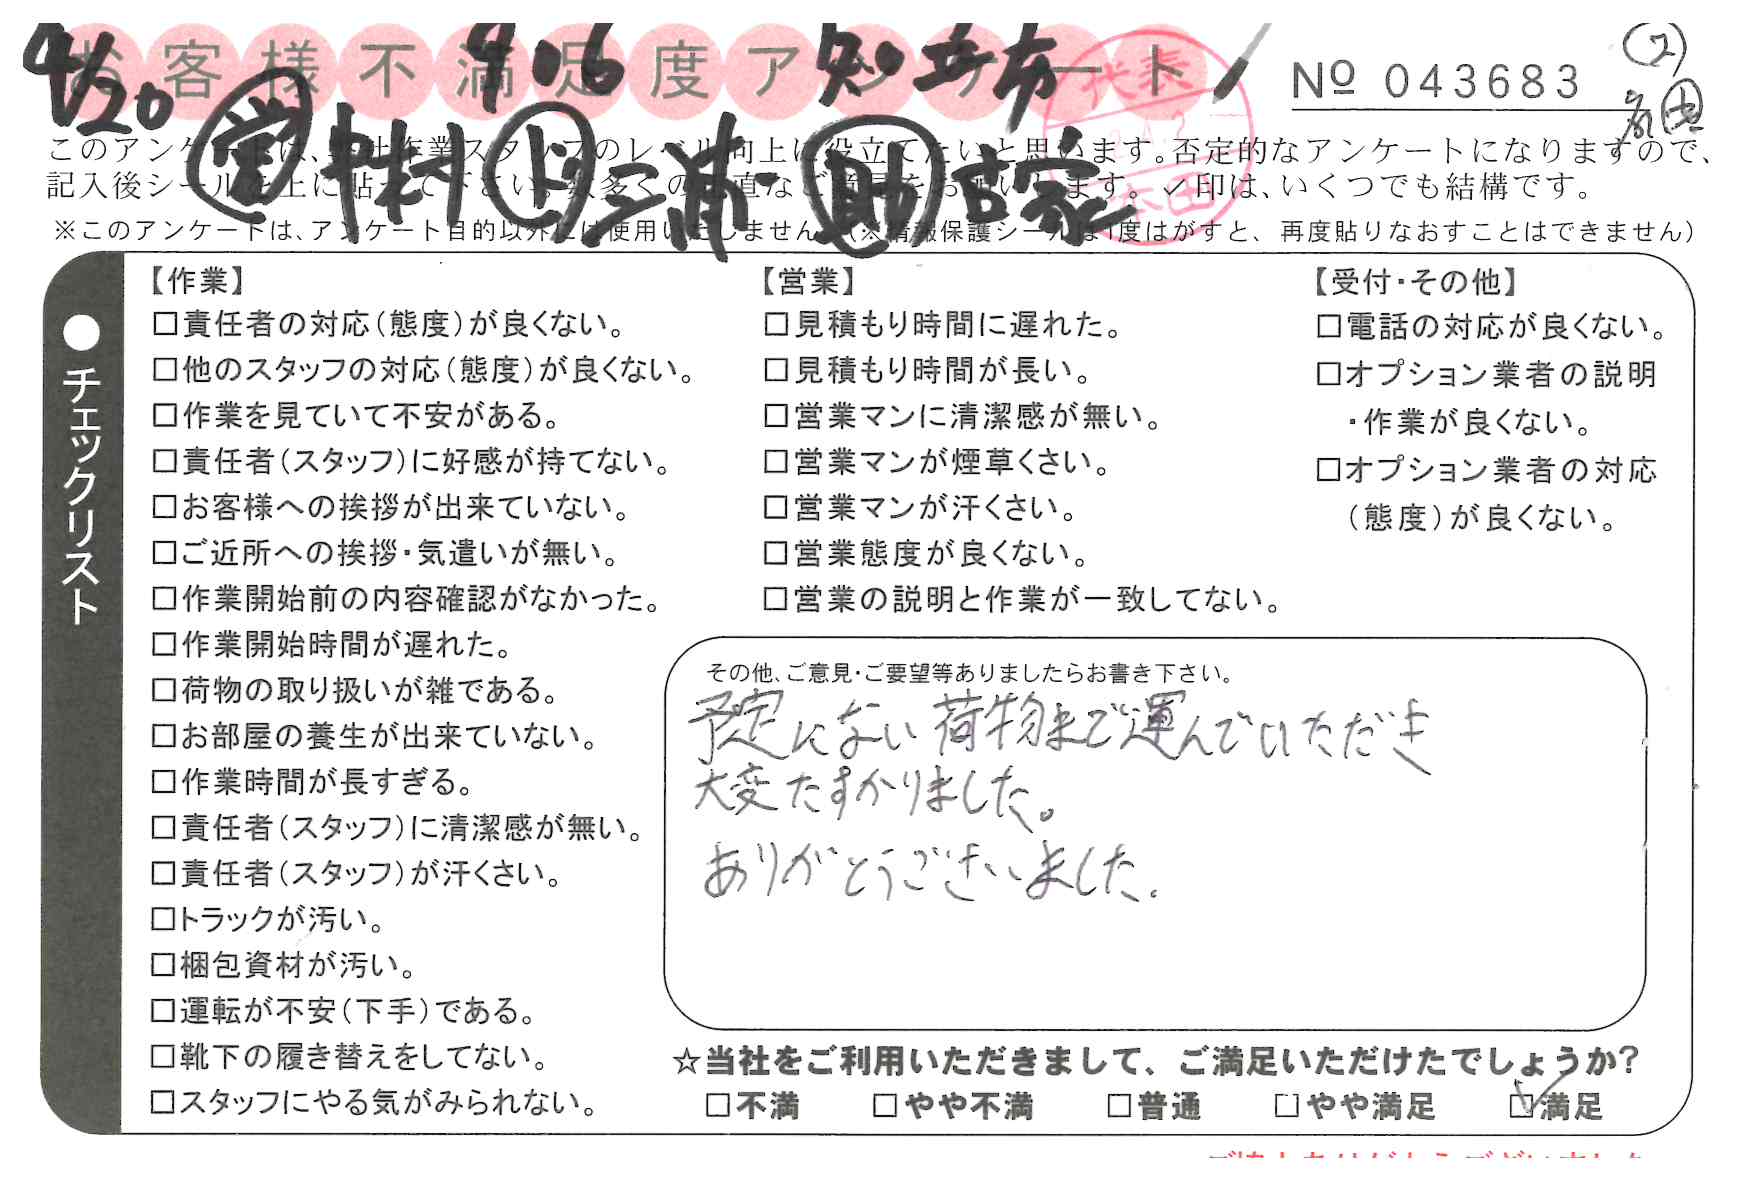 お客様不満足度アンケート
4/20 9.6 知立市
代表
本田
No 043683
②
営 中村 ト 三浦 助 古家
このアンケートは、弊社作業スタッフのレベル向上に役立てたいと思います。否定的なアンケートになりますので、
記入後シールを上に貼って下さい。数多くの正直なご意見をお願いします。✓印は、いくつでも結構です。
※このアンケートは、アンケート目的以外には使用いたしません。(※情報保護シールは1度はがすと、再度貼りなおすことはできません)
●チェックリスト
【作業】
□責任者の対応(態度)が良くない。
□他のスタッフの対応(態度)が良くない。
□作業を見ていて不安がある。
□責任者(スタッフ)に好感が持てない。
□お客様への挨拶が出来ていない。
□ご近所への挨拶・気遣いが無い。
□作業開始前の内容確認がなかった。
□作業開始時間が遅れた。
□荷物の取り扱いが雑である。
□お部屋の養生が出来ていない。
□作業時間が長すぎる。
□責任者(スタッフ)に清潔感が無い。
□責任者(スタッフ)が汗くさい。
□トラックが汚い。
□梱包資材が汚い。
□運転が不安(下手)である。
□靴下の履き替えをしてない。
□スタッフにやる気がみられない。
【営業】
□見積もり時間に遅れた。
□見積もり時間が長い。
□営業マンに清潔感が無い。
□営業マンが煙草くさい。
□営業マンが汗くさい。
□営業態度が良くない。
□営業の説明と作業が一致してない。
【受付・その他】
□電話の対応が良くない。
□オプション業者の説明
・作業が良くない。
□オプション業者の対応
(態度)が良くない。
その他、ご意見・ご要望等ありましたらお書き下さい。
予定にない荷物まで運んでいただき
大変たすかりました。
ありがとうございました。
☆当社をご利用いただきまして、ご満足いただけたでしょうか?
□不満 □やや不満 □普通 □やや満足 ☑満足
ご協力ありがとうございました